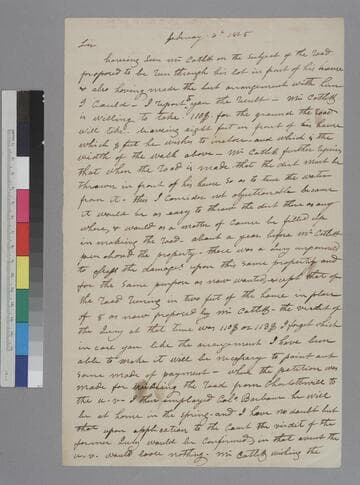 February 2d 1825
Sir
having seen Mr Catlett on the subject of the road
proposed to be run through his lot in part of his house
& also having made the best arrangement with him
I could - I report to you the result - Mr Catlett
is willing to take 110$. for the ground the road
will take. leaving eight feet in front of his house
which 8 feet he wishes to inclose and which is the
width of the walk above - Mr Catlett further requires
that when the road is made that the dirt must be
thrown in front of his house so as to turn the water
from it. this I consider not objectionable because
it would be as easy to throw the dirt there as any
where, & would as a matter of course be filled up
in making the road. about a year before Mr Catlett
purchased the property - there was a Jury impanneled
to assess the damages upon this same property and
for the same purpose as now wanted, except that of
the road running in two feet of the house in place
of 8 as now proposed by Mr Catlett - the verdict of
the Jury at that time was 115$ or 118$ I forget which
in case you like the arrangement I have been
able to make it will be necessary to point out
some mode of payment - when the petition was
made for the road from Charlottesvill to
the u. v - I then employed Colo Barbour he will
be at home in the spring - and I have no doubt but
that upon application to the Court the virdict of the
former Jury would be confirmed, in that event the
u. v. would loose nothing. Mr Catlett wishing the